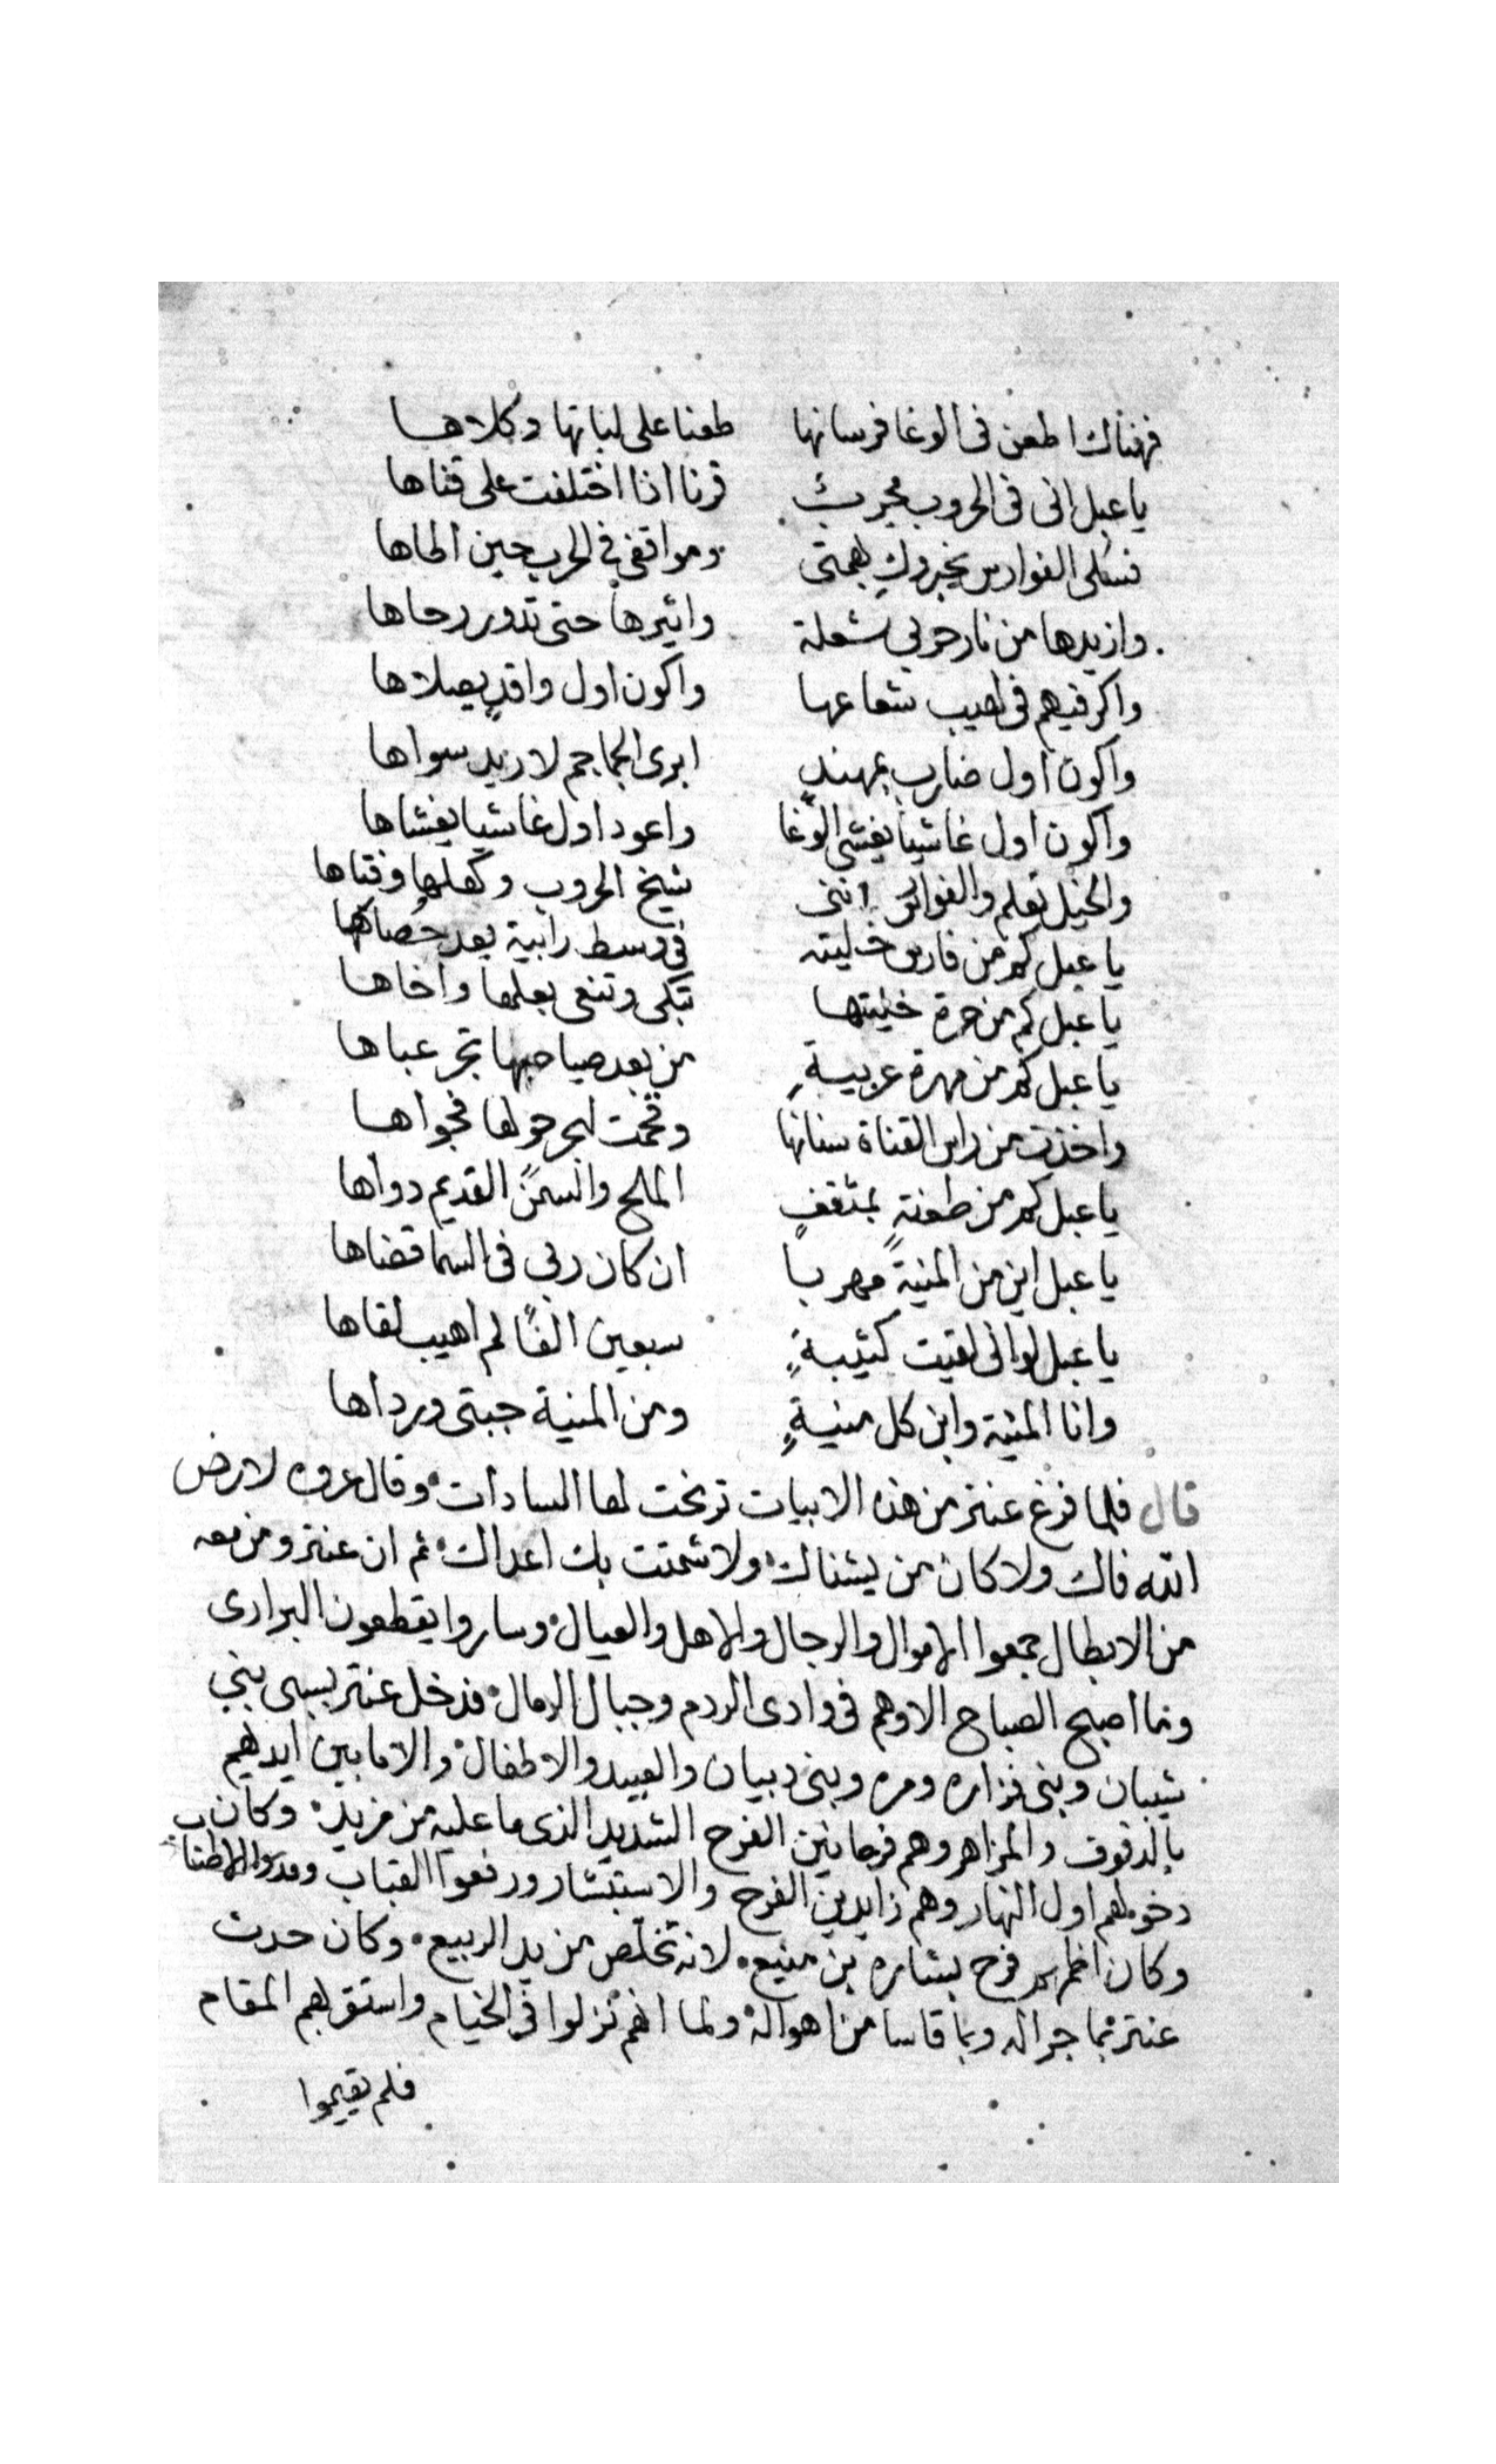 فهناك اطعن فى الوغا فرسانها طعنا على لباتها وكلاها
يا عبل انى فى الحروب مجرب قرنا اذا اختلفت على قناها
فسئلى الفوارس يخبروكِ بهمتى ومواقفى فى الحرب حين الحاها
وازيدها من نار حربى شعلة واثيرها حتى تدور رحاها
واكر فيهم فى لهيب شعاعها واكون اول واقدٍ يصلاها
واكون اول ضاربٍ بمهندٍ ابرى الجماجم لا اريد سواها
واكون اول غاشيا يغشى الوغا واعود اول غاشيا يغشاها
والخيل تعلم والفوارس اننى شيخ الحروب وكهلها وفتاها
يا عبل كم من فارس خليته فى وسط رابية يعد حصاها
يا عبل كم من حرة خليتها تبكى وتنعى بعلها واخاها
يا عبل كم من مهرة عربيةٍ من بعد صاحبها تجر عباها
واخذت من راس القناة سنانها وقحمت لجر حولها
يا عبل كم من طعنةٍ بمثقفٍ الملح والسمن القديم دواها
يا عبل اين من المنية مهربا ان كان ربى فى السما قضاها
يا عبل لو انى لقيت كتيبةٍ سبعين الفًا لم اهيب لقاها
وانا المنية وابن كل منيةٍ ومن المنية جبتى ورداها
قال فلما فرغ عنتر من هذه الابيات ترنحت لها السادات وقال عروه لا رض
الله فاك ولا كان من يشناك ولا شمتت بك اعداك ثم ان عنتر ومن معه
من الابطال جمعوا الاموال والرجال والاهل والعيال وساروا يقطعون البرارى
وما اصبح الصباح الا وهم فى وادى الردم وجبال الرمال فدخل عنتر بسبى بنى
شيبان وبنى فزاره ومره وبنى دبيان والعبيد والاطفال والاما بين ايديهم
بالدفوف والمزاهر وهم فرحانين الفرح الشديد الذى ما عليه من مزيد وكان
دخولهم اول النهار وهم زايدين الفرح والاستبشار ورفعوا القباب ومدوا الاطناب
وكان اظهرهم فرح بشاره بن منيع لانه تخلص من يد الربيع وكان حدث
عنتر بما جراله وبما قاسا من اهواله ولما انهم نزلوا فى الخيام واستقر بهم المقام
فلم يقيموا